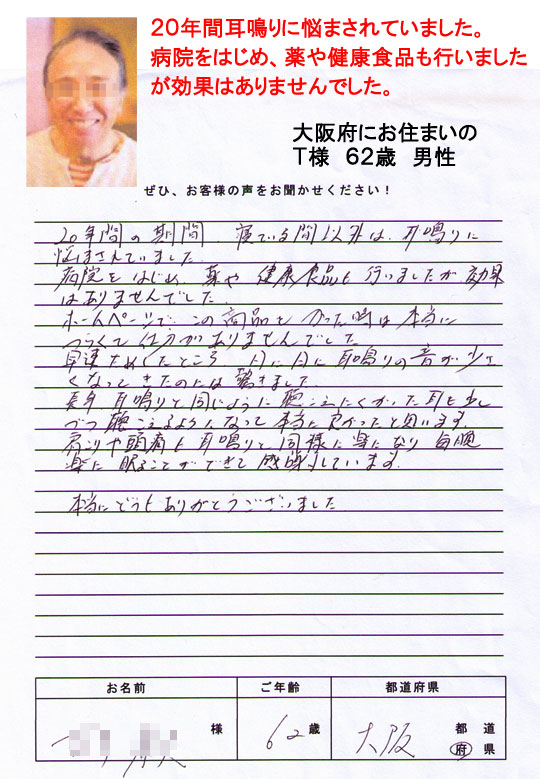 20年間耳鳴りに悩まされていました。
病院をはじめ、薬や健康食品も行いました
が効果はありませんでした。
大阪府にお住まいの
T様 62歳 男性
ぜひ、お客様の声をお聞かせください！
20年間の期間、寝ている間以外は、耳鳴りに
悩まされていました
病院をはじめ、薬や健康食品も行いましたが効果
はありませんでした
ホームページで、この商品をかった時は本当に
つらくて仕方がありませんでした
早速ためしたところ 日に日に耳鳴りの音が少さ
くなってきたのには驚きました
長年耳鳴りと同じように聴こえにくかった耳も少し
づつ聴こえるようになって本当に良かったと思います
肩こりや頭痛も耳鳴りと同様に楽になり毎晩
楽に眠ることができて感謝しています
本当にどうもありがとうございました
お名前 ご年齢 都道府県
様 62歳 大阪 都道
府県